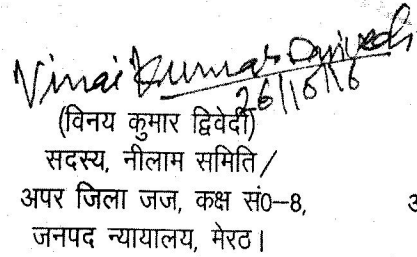 Vinai Kumar Dwivedi
26/10/16
(विनय कुमार द्विवेदी)
सदस्य, नीलाम समिति/
अपर जिला जज, कक्ष सं0-8,
जनपद न्यायालय, मेरठ।